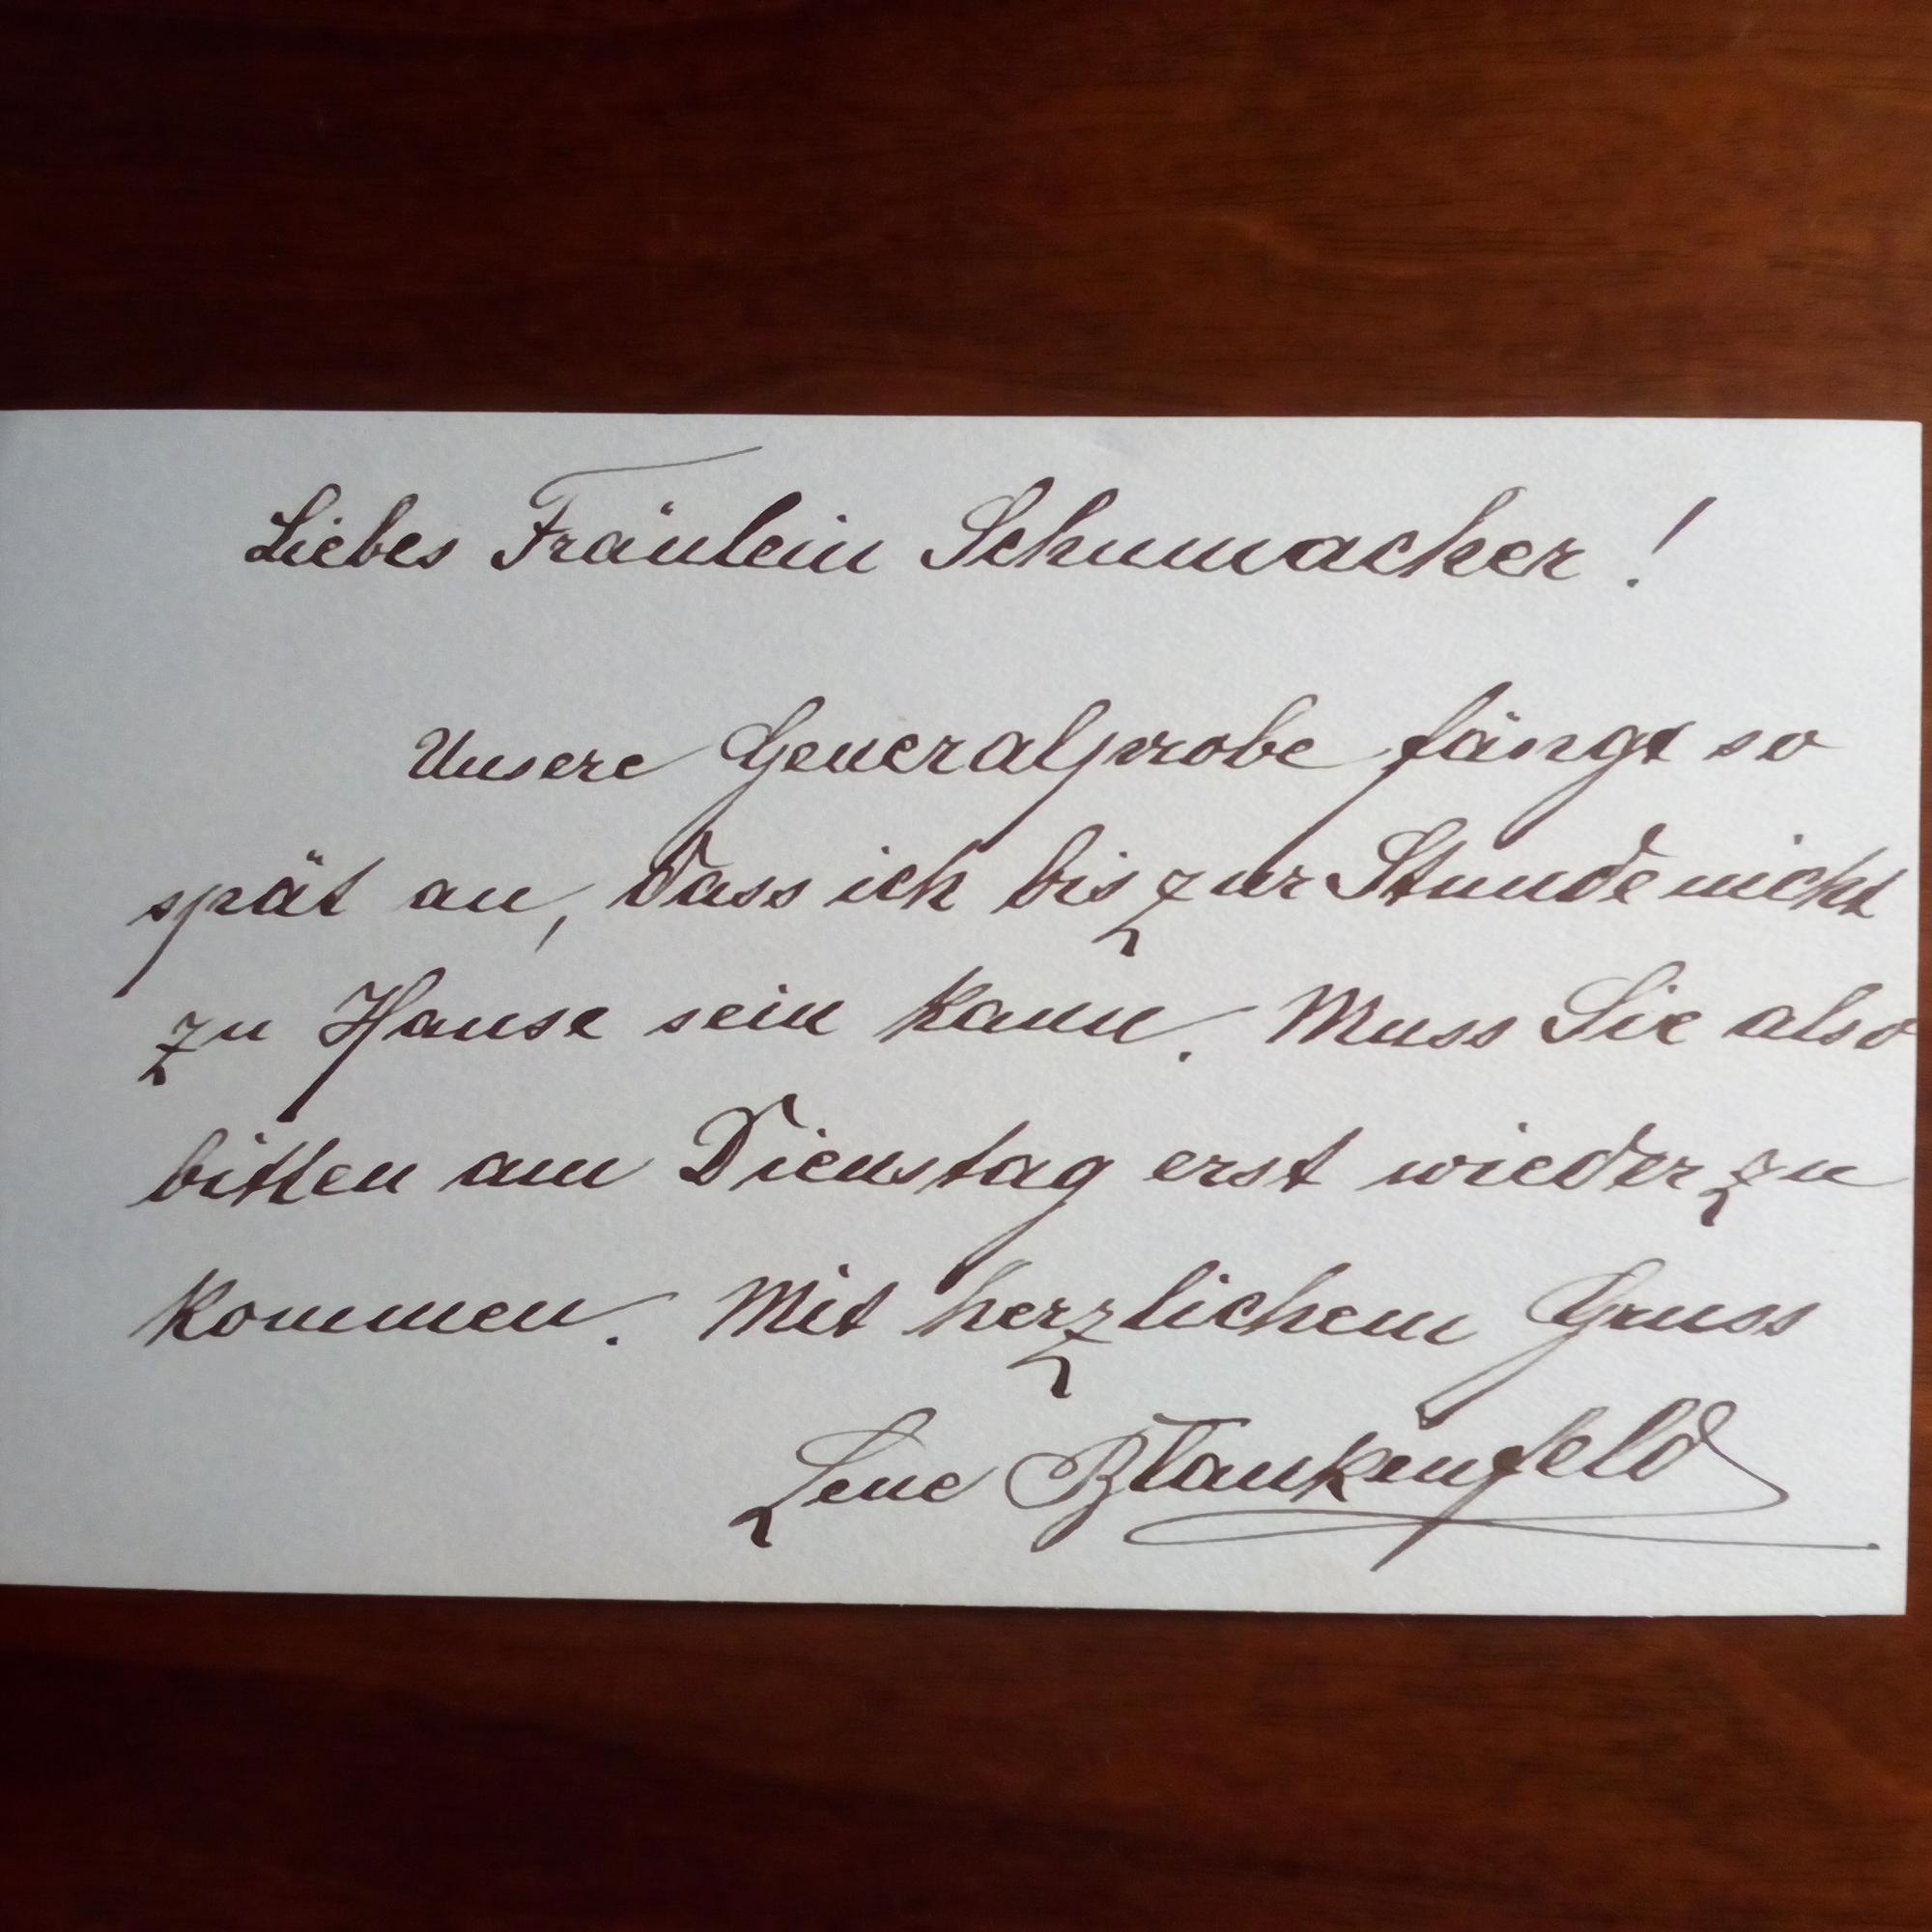 Liebes Fräulein Schumacher!
Unsere Generalprobe fängt so
spät an, dass ich bis zur Stunde nicht
zu Hause sein kann. Muss Sie also
bitten am Dienstag erst wieder zu
kommen. Mit herzlichem Gruss
Lene Blankenfeld